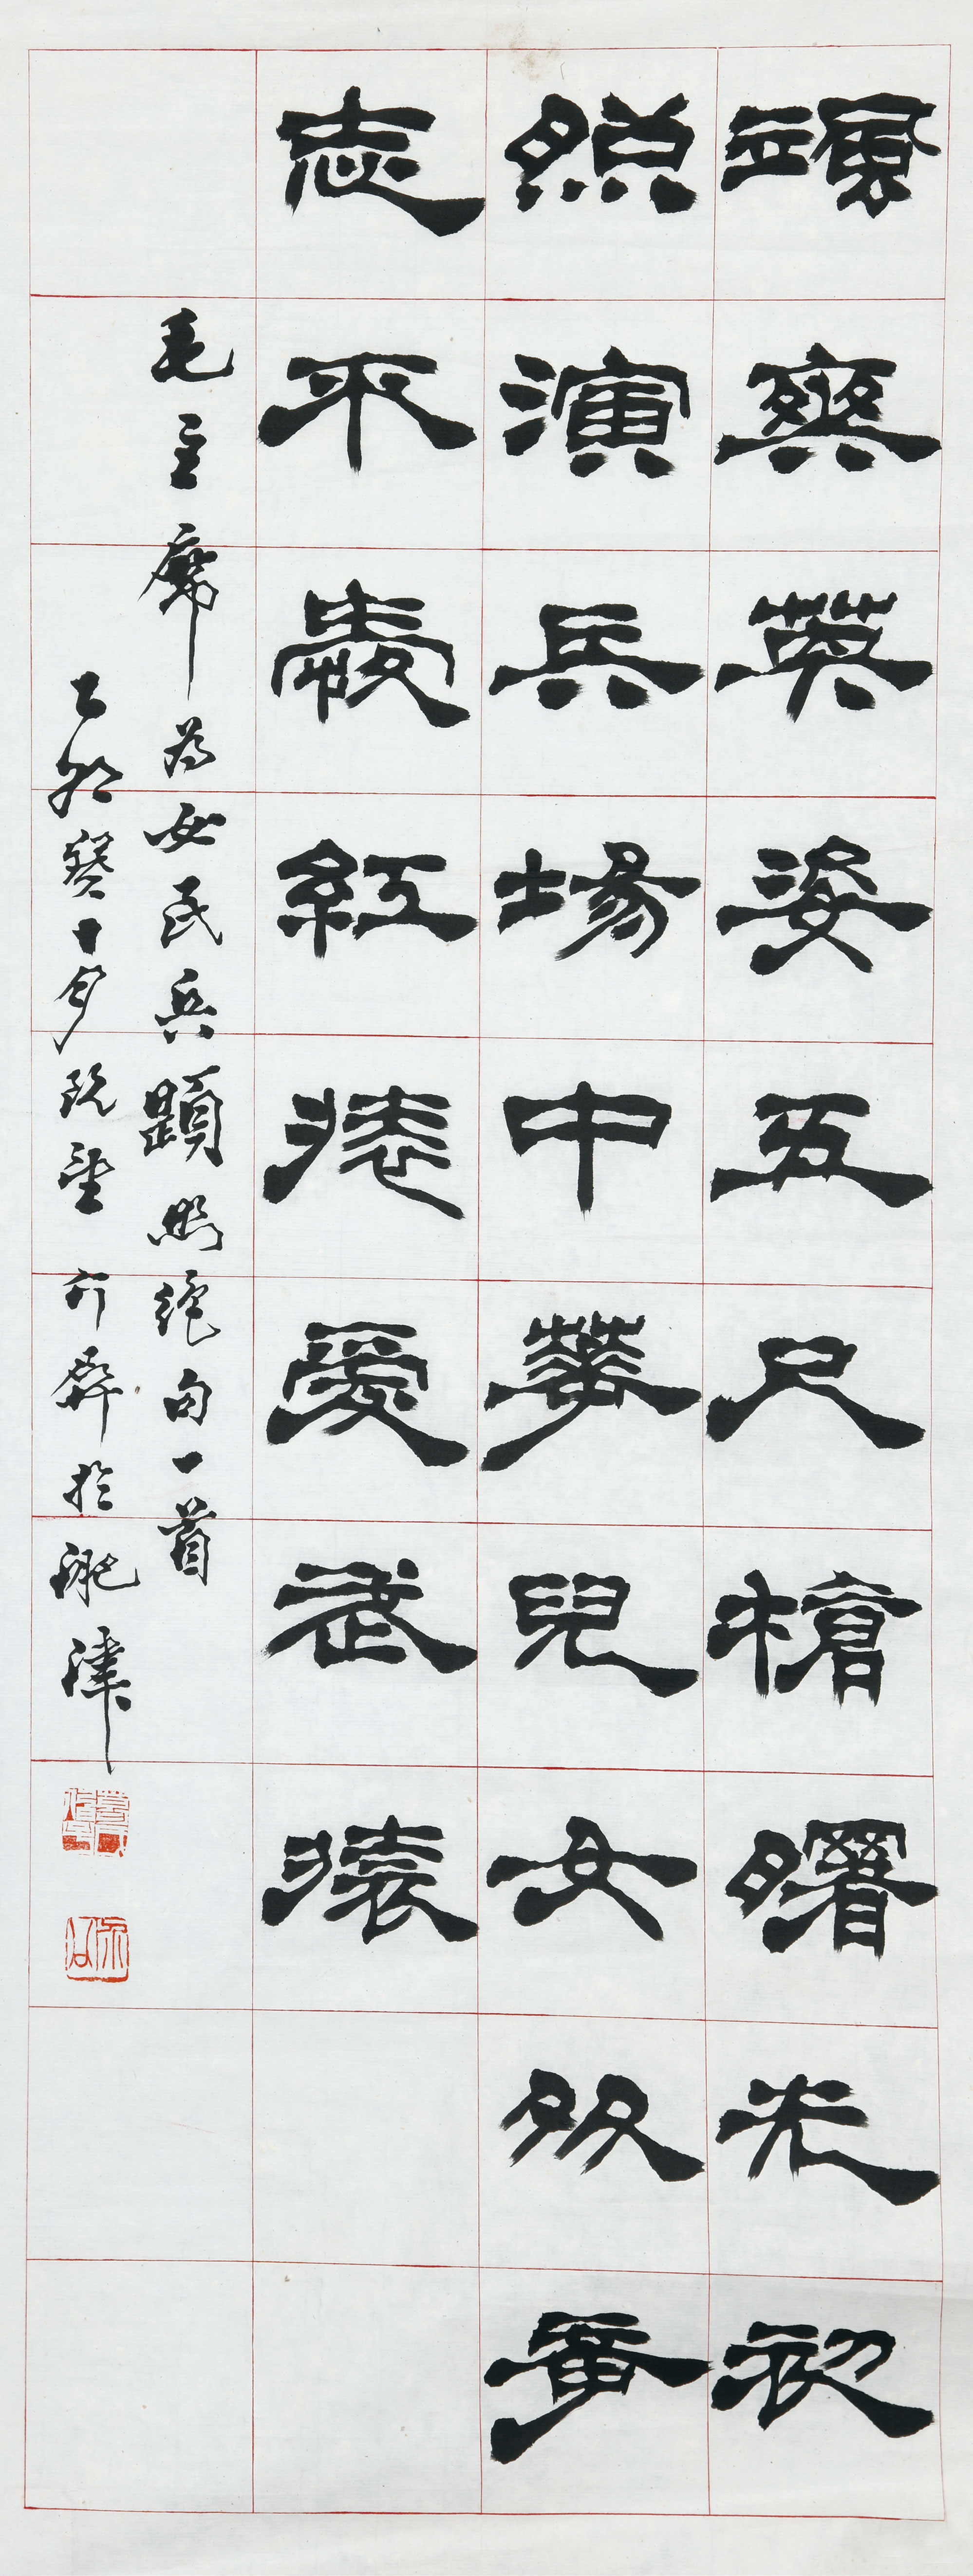 颯爽英姿五尺槍曙光初
照演兵場中華兒女多奇
志不愛紅裝愛武裝
毛主席為女民兵題照絕句一首
乙卯 十月既望 於淝津